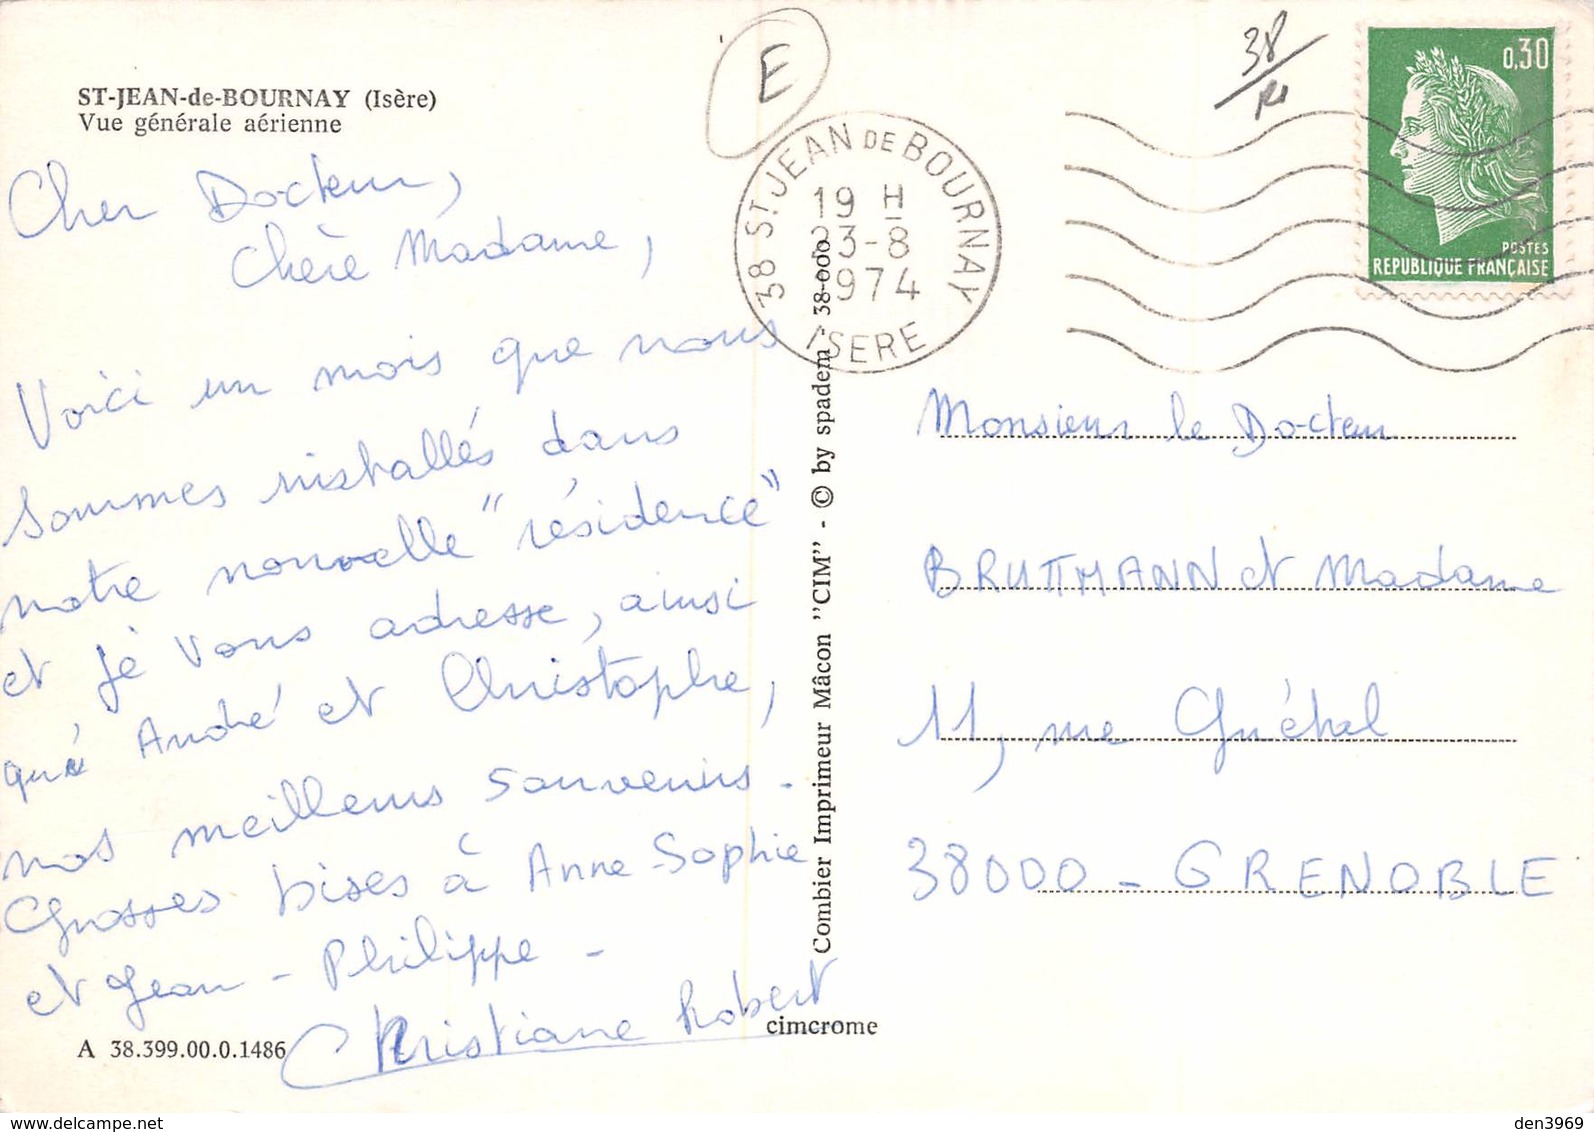 ST-JEAN-de-BOURNAY (Isère)
Vue générale aérienne
Cher Docteur,
Chère Madame,
Voici un mois que nous
sommes installés dans
notre nouvelle "résidence"
et je vous adresse, ainsi
qu'à André et Christophe,
nos meilleurs souvenirs.
Grosses bises à Anne-Sophie
et Jean-Philippe -
Christiane Robert
A 38.399.00.0.1486
cimcrome
Combier Imprimeur Mâcon "CIM" - © by spadem - 38-000
E
38 ST JEAN DE BOURNAY
19 H
23-8
1974
ISERE
38
0,30
POSTES
REPUBLIQUE FRANÇAISE
Monsieur le Docteur
BRUTTMANN et Madame
11, rue Guétal
38000 - GRENOBLE
delcampe.net
den3969